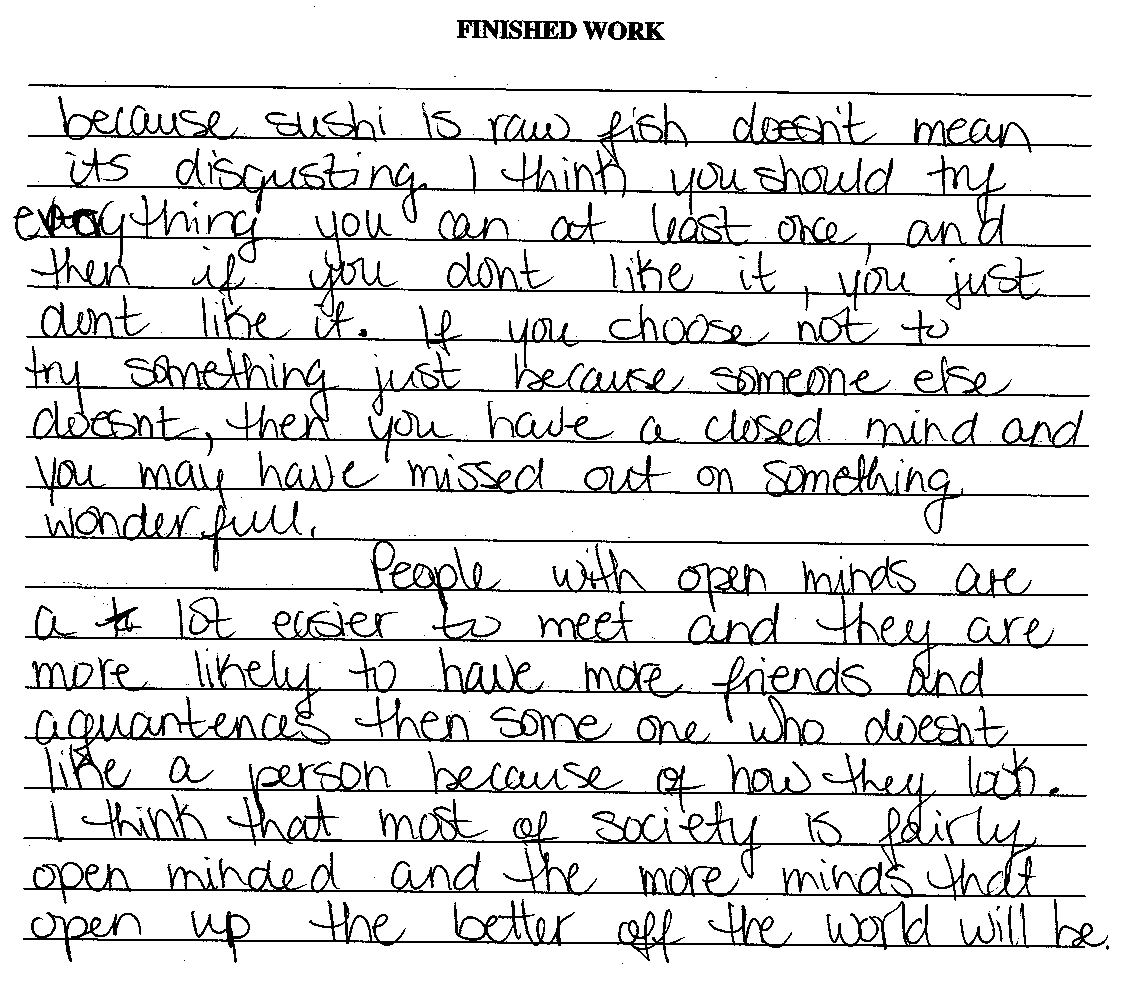 FINISHED WORK
because sushi is raw fish doesn't mean
its disgusting. I think you should try
everything you can at least once, and
then if you dont like it, you just
dont like it. If you choose not to
try something just because someone else
doesnt, then you have a closed mind and
you may have missed out on something
wonderfull.
People with open minds are
a lot easier to meet and they are
more likely to have more friends and
aquantences then some one who doesnt
like a person because of how they look.
I think that most of society is fairly
open minded and the more minds that
open up the better off the world will be.